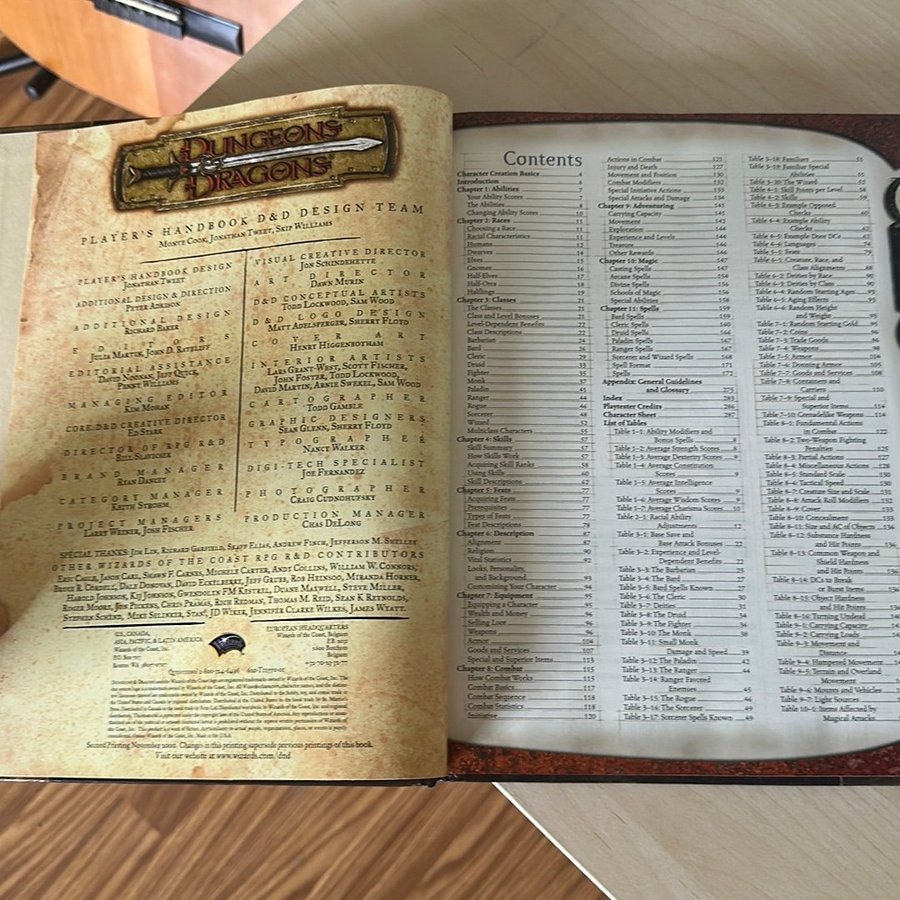 DUNGEONS
DRAGONS
PLAYER'S HANDBOOK D&D DESIGN TEAM
MONTE COOK, JONATHAN TWEET, SKIP WILLIAMS
PLAYER'S HANDBOOK DESIGN
JONATHAN TWEET
ADDITIONAL DESIGN & DIRECTION
PETER ADKISON
ADDITIONAL DESIGN
RICHARD BAKER
EDITORS
JULIA MARTIN, JOHN D. RATELIFF
EDITORIAL ASSISTANCE
DAVID NOONAN, JEFF QUICK,
PENNY WILLIAMS
MANAGING EDITOR
KIM MOHAN
CORE D&D CREATIVE DIRECTOR
ED STARK
DIRECTOR OF RPG R&D
BILL SLAVICSEK
BRAND MANAGER
RYAN DANCEY
CATEGORY MANAGER
KEITH STROHM
PROJECT MANAGERS
LARRY WEINER, JOSH FISCHER
VISUAL CREATIVE DIRECTOR
JON SCHINDEHETTE
ART DIRECTOR
DAWN MURIN
D&D CONCEPTUAL ARTISTS
TODD LOCKWOOD, SAM WOOD
D&D LOGO DESIGN
MATT ADELSPERGER, SHERRY FLOYD
COVER ART
HENRY HIGGENBOTHAM
INTERIOR ARTISTS
LARS GRANT-WEST, SCOTT FISCHER,
JOHN FOSTER, TODD LOCKWOOD,
DAVID MARTIN, ARNIE SWEKEL, SAM WOOD
CARTOGRAPHER
TODD GAMBLE
GRAPHIC DESIGNERS
SEAN GLENN, SHERRY FLOYD
TYPOGRAPHER
NANCY WALKER
DIGI-TECH SPECIALIST
JOE FERNANDEZ
PHOTOGRAPHER
CRAIG CUDNOHUFSKY
PRODUCTION MANAGER
CHAS DELONG
SPECIAL THANKS: JIM LIN, RICHARD GARFIELD, SKAFF ELIAS, ANDREW FINCH, JEFFERSON M. SHELLEY
OTHER WIZARDS OF THE COAST RPG R&D CONTRIBUTORS
ERIC CAGLE, JASON CARL, SHAWN F. CARNES, MICHELE CARTER, ANDY COLLINS, WILLIAM W. CONNORS,
BRUCE R. CORDELL, DALE DONOVAN, DAVID ECKELBERRY, JEFF GRUBB, ROB HEINSOO, MIRANDA HORNER,
HAROLD JOHNSON, KIJ JOHNSON, GWENDOLYN FM KESTREL, DUANE MAXWELL, STEVE MILLER,
ROGER MOORE, JON PICKENS, CHRIS PRAMAS, RICH REDMAN, THOMAS M. REID, SEAN K REYNOLDS,
STEPHEN SCHEND, MIKE SELINKER, STAN!, JD WIKER, JENNIFER CLARKE WILKES, JAMES WYATT.
U.S., CANADA,
ASIA, PACIFIC, & LATIN AMERICA
Wizards of the Coast, Inc.
P.O. Box 707
Renton WA 98057-0707
EUROPEAN HEADQUARTERS
Wizards of the Coast, Belgium
P.B. 2031
2600 Berchem
Belgium
Second Printing November 2000. Changes in this printing supersede previous printings of this book.
Visit our website at www.wizards.com/dnd
Contents
Character Creation Basics 4
Introduction 6
Chapter 1: Abilities 7
Your Ability Scores 7
The Abilities 8
Changing Ability Scores 10
Chapter 2: Races 11
Choosing a Race 11
Racial Characteristics 11
Humans 12
Dwarves 14
Elves 15
Gnomes 16
Half-Elves 17
Half-Orcs 18
Halflings 19
Chapter 3: Classes 21
The Classes 21
Class and Level Bonuses 21
Level-Dependent Benefits 22
Class Descriptions 22
Barbarian 24
Bard 26
Cleric 29
Druid 33
Fighter 35
Monk 37
Paladin 41
Ranger 44
Rogue 47
Sorcerer 48
Wizard 51
Multiclass Characters 55
Chapter 4: Skills 57
Skill Summary 57
How Skills Work 57
Acquiring Skill Ranks 58
Using Skills 60
Skill Descriptions 62
Chapter 5: Feats 77
Acquiring Feats 77
Prerequisites 77
Types of Feats 77
Feat Descriptions 78
Chapter 6: Description 87
Alignment 87
Religion 90
Vital Statistics 92
Looks, Personality,
and Background 93
Customizing Your Character 94
Chapter 7: Equipment 95
Equipping a Character 95
Wealth and Money 96
Selling Loot 96
Weapons 96
Armor 104
Goods and Services 107
Special and Superior Items 113
Chapter 8: Combat 115
How Combat Works 115
Combat Basics 117
Combat Sequence 118
Combat Statistics 118
Initiative 120
Actions in Combat 121
Injury and Death 127
Movement and Position 130
Combat Modifiers 132
Special Initiative Actions 133
Special Attacks and Damage 134
Chapter 9: Adventuring 141
Carrying Capacity 141
Movement 143
Exploration 144
Experience and Levels 144
Treasure 146
Other Rewards 146
Chapter 10: Magic 147
Casting Spells 147
Arcane Spells 154
Divine Spells 156
Schools of Magic 156
Special Abilities 158
Chapter 11: Spells 159
Bard Spells 159
Cleric Spells 160
Druid Spells 166
Paladin Spells 167
Ranger Spells 167
Sorcerer and Wizard Spells 168
Spell Format 171
Spells 172
Appendix: General Guidelines
and Glossary 275
Index 283
Playtester Credits 286
Character Sheet 287
List of Tables
Table 1–1: Ability Modifiers and
Bonus Spells 8
Table 1–2: Average Strength Scores 8
Table 1–3: Average Dexterity Scores 9
Table 1–4: Average Constitution
Scores 9
Table 1–5: Average Intelligence
Scores 9
Table 1–6: Average Wisdom Scores 9
Table 1–7: Average Charisma Scores 10
Table 2–1: Racial Ability
Adjustments 12
Table 3–1: Base Save and
Base Attack Bonuses 22
Table 3–2: Experience and Level-
Dependent Benefits 22
Table 3–3: The Barbarian 25
Table 3–4: The Bard 27
Table 3–5: Bard Spells Known 27
Table 3–6: The Cleric 30
Table 3–7: Deities 31
Table 3–8: The Druid 34
Table 3–9: The Fighter 36
Table 3–10: The Monk 38
Table 3–11: Small Monk
Damage and Speed 39
Table 3–12: The Paladin 42
Table 3–13: The Ranger 44
Table 3–14: Ranger Favored
Enemies 45
Table 3–15: The Rogue 46
Table 3–16: The Sorcerer 49
Table 3–17: Sorcerer Spells Known 49
Table 3–18: Familiars 51
Table 3–19: Familiar Special
Abilities 51
Table 3–20: The Wizard 53
Table 4–1: Skill Points per Level 58
Table 4–2: Skills 59
Table 4–3: Example Opposed
Checks 60
Table 4–4: Example Ability
Checks 62
Table 4–5: Example Door DCs 62
Table 4–6: Languages 74
Table 5–1: Feats 79
Table 6–1: Creature, Race, and
Class Alignments 88
Table 6–2: Deities by Race 90
Table 6–3: Deities by Class 90
Table 6–4: Random Starting Ages 93
Table 6–5: Aging Effects 93
Table 6–6: Random Height
and Weight 93
Table 7–1: Random Starting Gold 95
Table 7–2: Coins 96
Table 7–3: Trade Goods 96
Table 7–4: Weapons 98
Table 7–5: Armor 104
Table 7–6: Donning Armor 105
Table 7–7: Goods and Services 108
Table 7–8: Containers and
Carriers 110
Table 7–9: Special and
Superior Items 114
Table 7–10: Grenadelike Weapons 114
Table 8–1: Fundamental Actions
in Combat 122
Table 8–2: Two-Weapon Fighting
Penalties 125
Table 8–3: Partial Actions 127
Table 8–4: Miscellaneous Actions 128
Table 8–5: Standard Scale 130
Table 8–6: Tactical Speed 130
Table 8–7: Creature Size and Scale 131
Table 8–8: Attack Roll Modifiers 132
Table 8–9: Cover 133
Table 8–10: Concealment 133
Table 8–11: Size and AC of Objects 136
Table 8–12: Substance Hardness
and Hit Points 136
Table 8–13: Common Weapon and
Shield Hardness
and Hit Points
Table 8–14: DCs to Break
or Burst Items 136
Table 8–15: Object Hardness
and Hit Points
Table 8–16: Turning Undead
Table 9–1: Carrying Capacity
Table 9–2: Carrying Loads
Table 9–3: Movement and
Distance
Table 9–4: Hampered Movement
Table 9–5: Terrain and Overland
Movement
Table 9–6: Mounts and Vehicles
Table 9–7: Light Sources
Table 10–1: Items Affected by
Magical Attacks